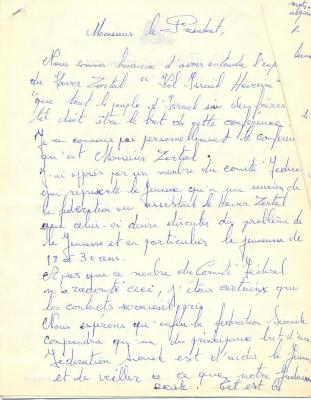 Monsieur le Président,
Nous sommes heureux d'avoir entendu l'ex
du Haver Zertal " Kol Israël Haverim
" que tout le peuple d'Israël soi des frères
tel doit être le but de cette conférence
Je ne connais pas personnellement le conféren
qu'est Monsieur Zertal.
J'ai appris par un membre du comité Fédéra
qui représente la Jeunesse qu'a une réunion de
la fédération ou assistait le Haver Zertal
que celui-ci désire discuter des problème de
la Jeunesse et en particulier la jeunesse de
à 30 ans.
pas que ce membre du Comité Fédéral
m'a raconté ceci, j'étais certains que
les contacts seraient pris
Nous espérons qu'enfin la fédération Sioniste
comprendra qu'un du principaux but d'une
Fédération sioniste est d'aider la Jeune
et de veiller a ce que notre
reste! Cet est la